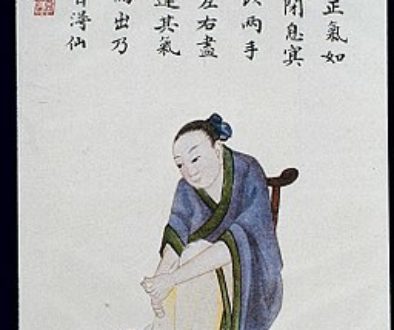 正氣如
閉息冥
兩手
左右盡
運其氣
出乃
淂仙